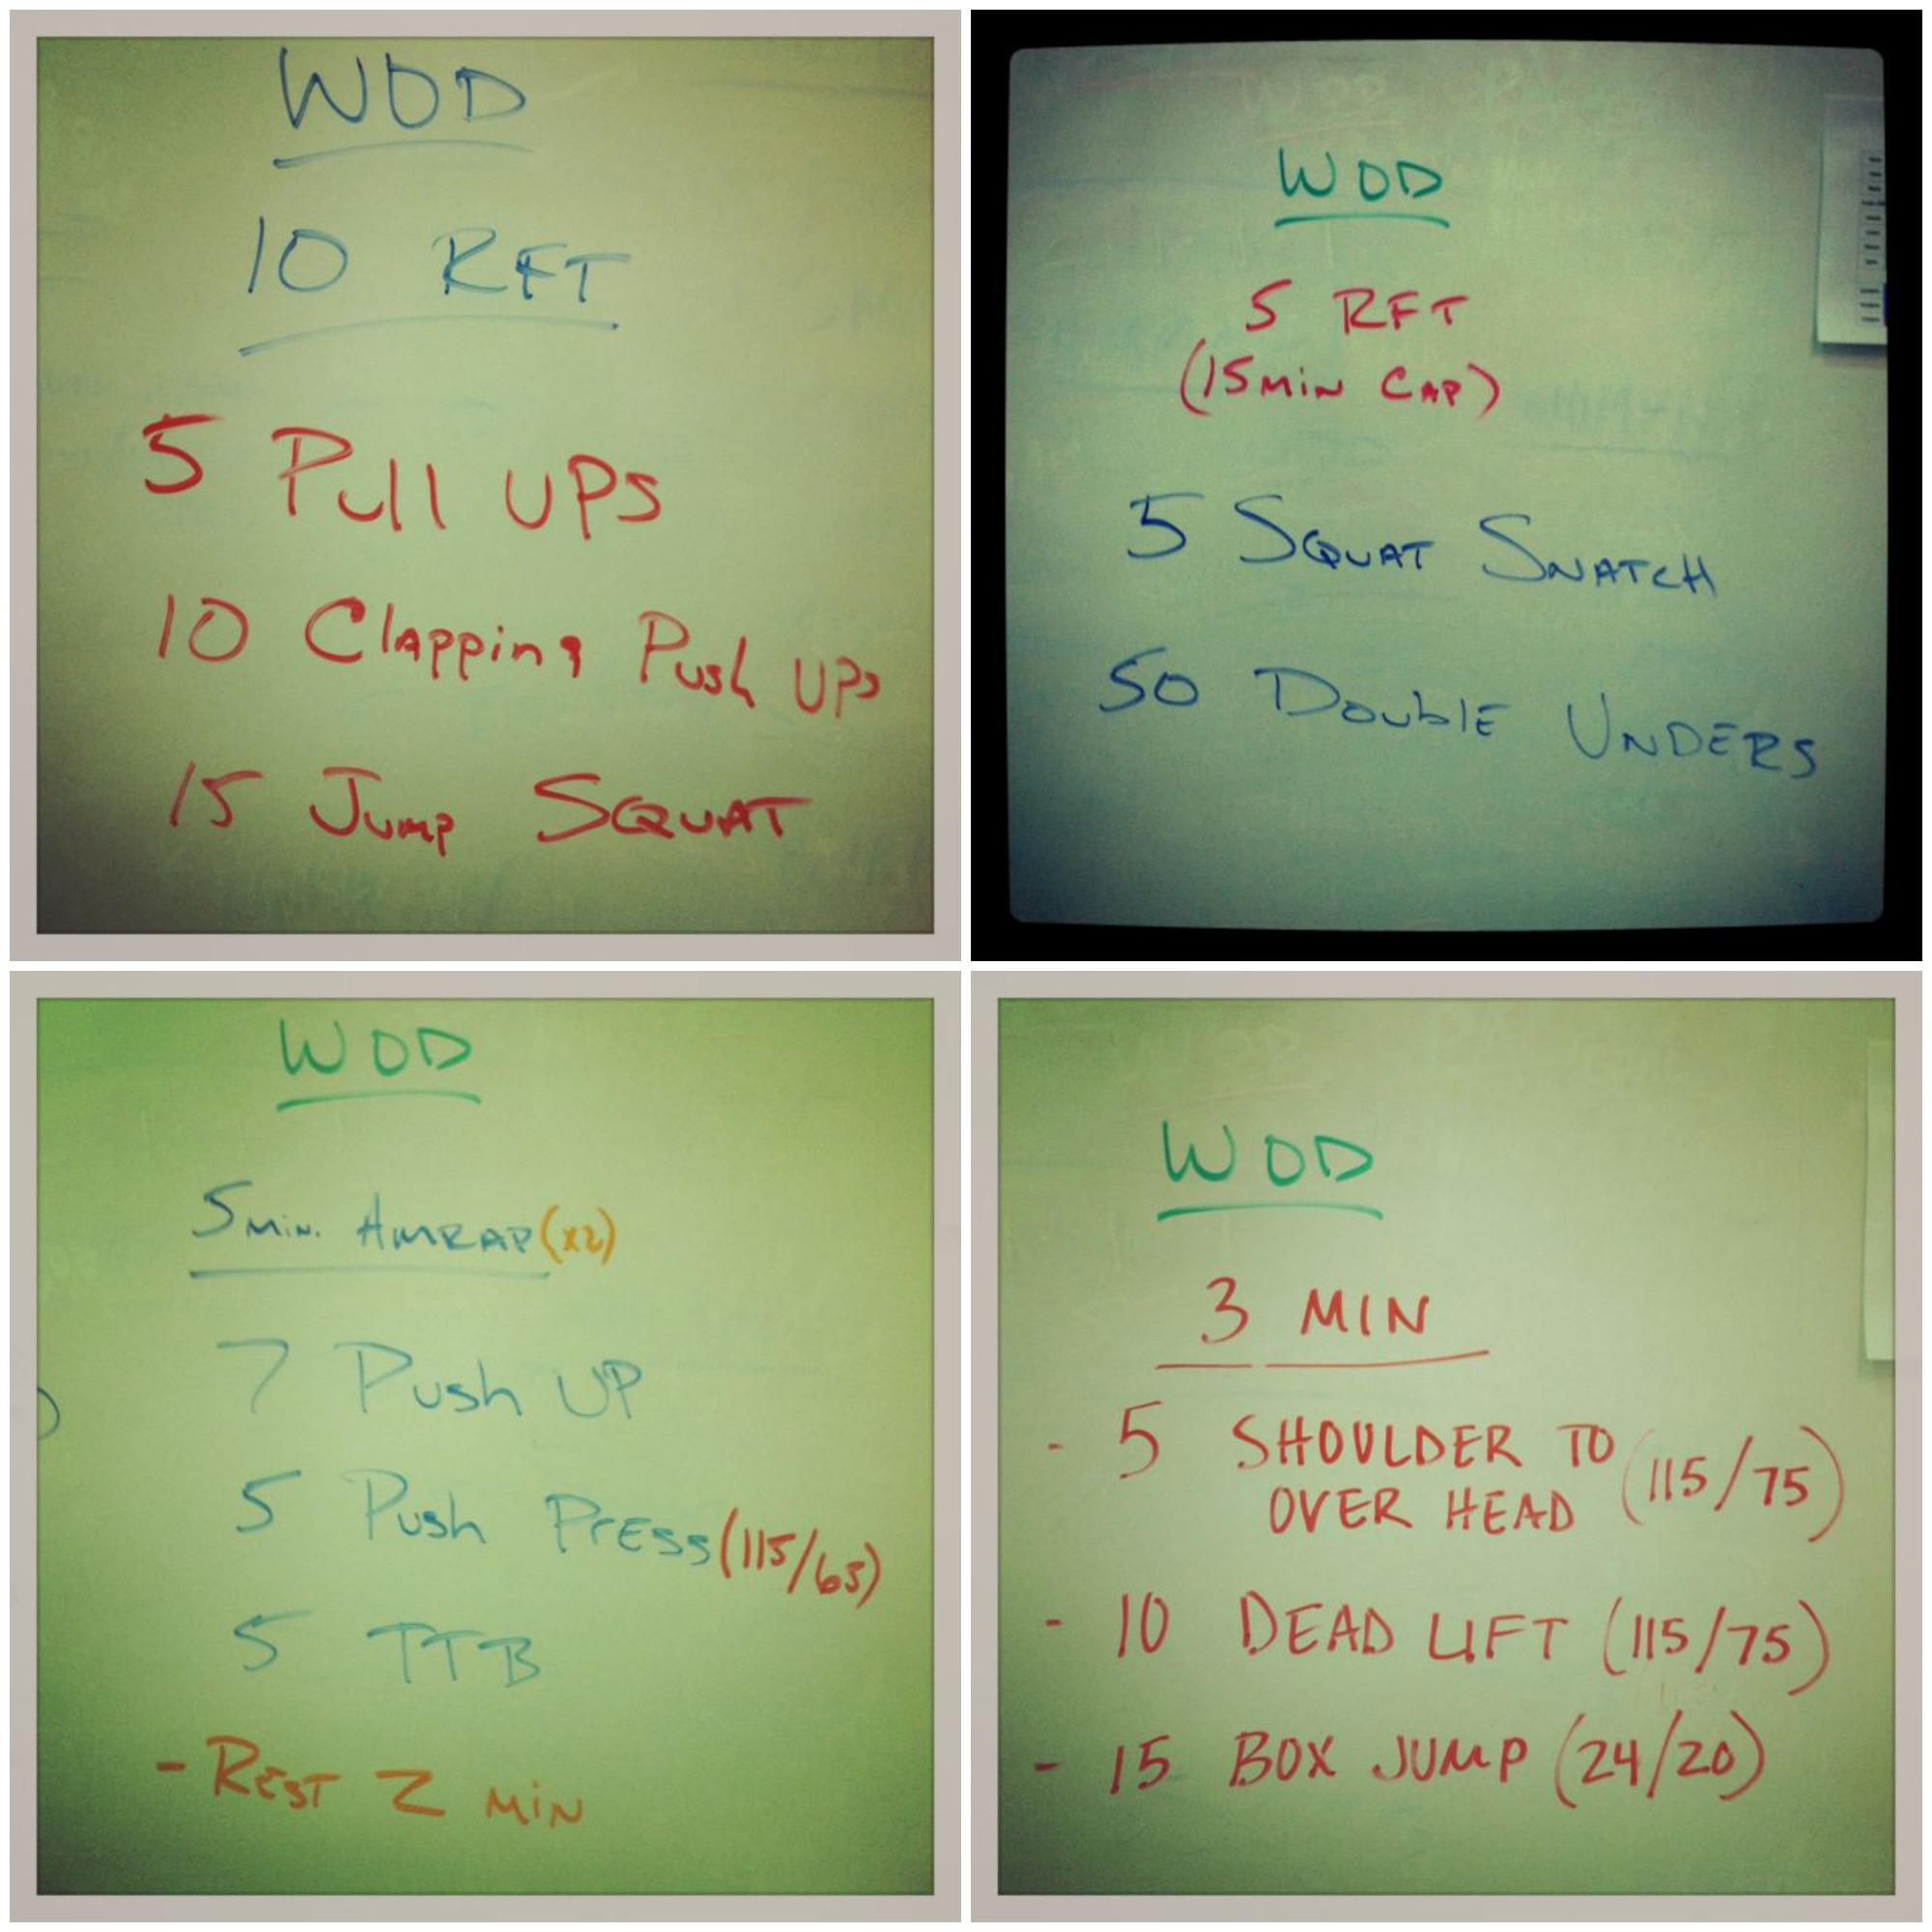 WOD
10 RFT
5 Pull UPS
10 Clapping Push UPs
15 Jump SQUAT
WOD
5 RFT
(15 MiN CAP)
5 SQUAT SNATCH
50 DOUblE UNDERS
WOD
5 Min. AMRAP (x2)
7 Push UP
5 Push PrESS (115/65)
5 TTB
- REST 2 MiN
WOD
3 MIN
- 5 SHOULDER TO
OVER HEAD (115/75)
- 10 DEAD LIFT (115/75)
- 15 BOX JUMP (24/20)